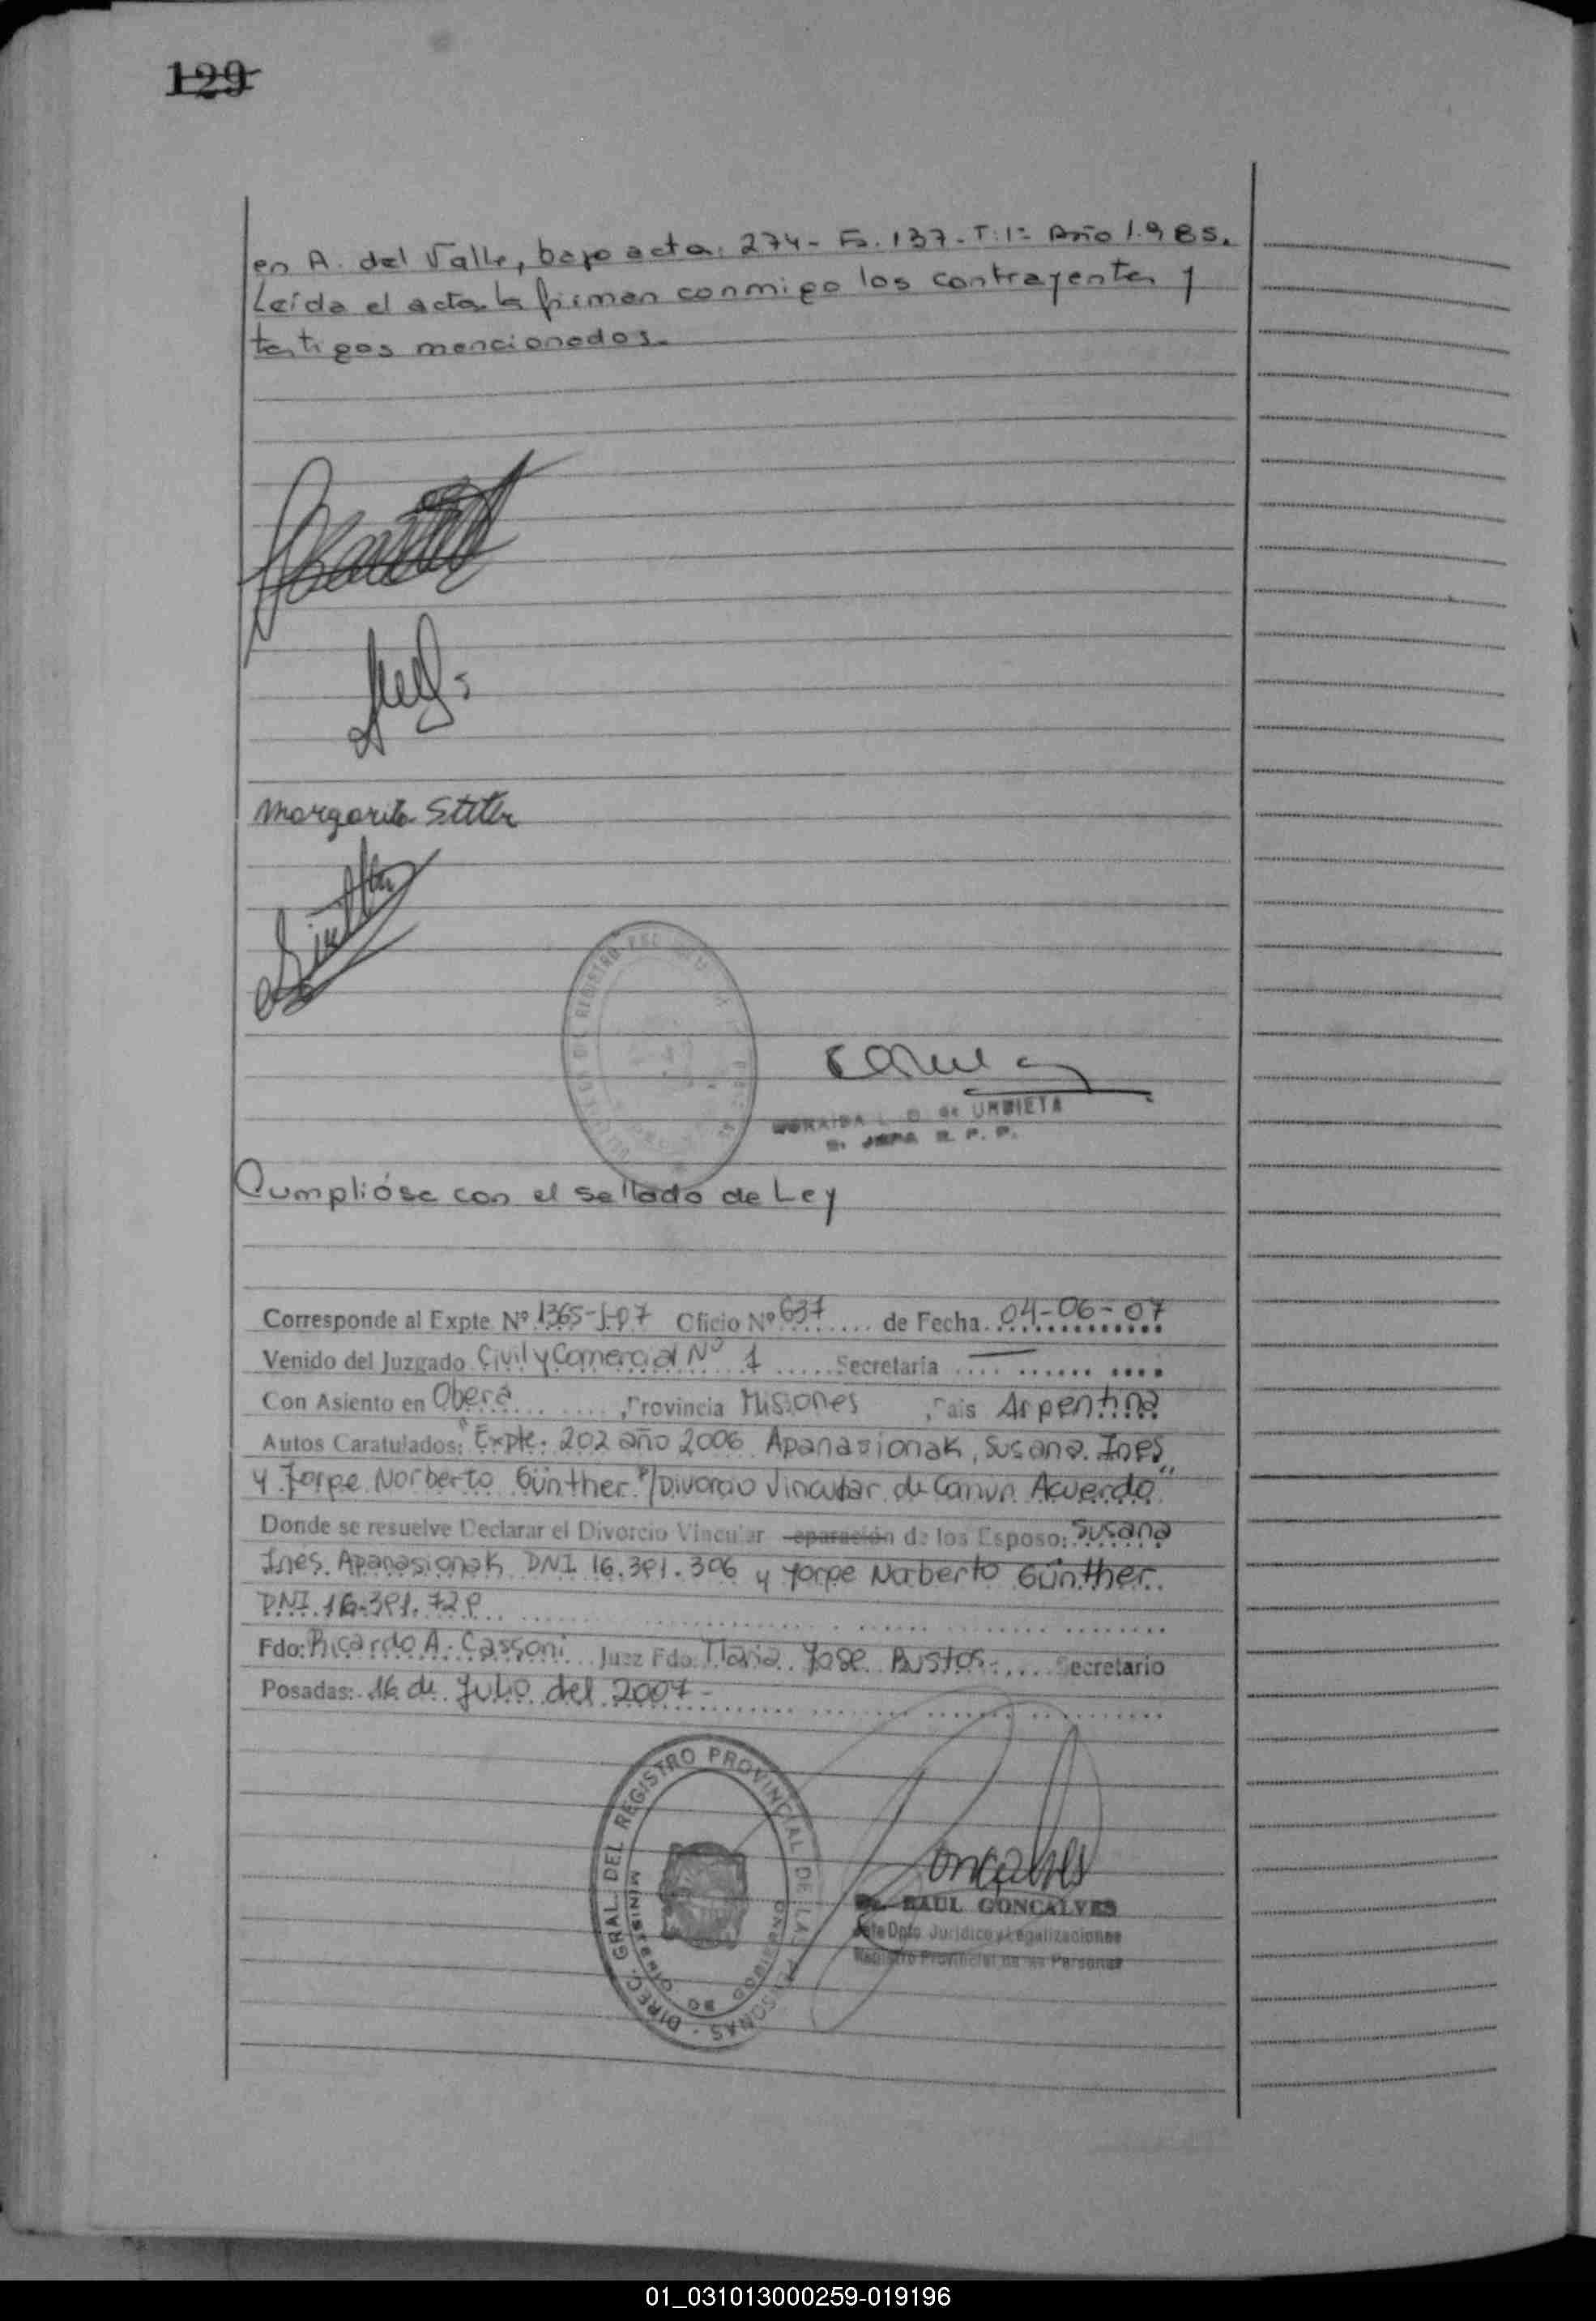 129
en A. del Valle, bajo acta: 274- Fo. 137- T: 1º Año 1.985.
Leída el acta la firman conmigo los contrayentes y
testigos mencionados.
Margarita
de URBIETA
R. P. P.
Cumplióse con el sellado de Ley
Corresponde al Expte. Nº 1365-J-07 Oficio Nº 637 de Fecha 04-06-07
Venido del Juzgado Civil y Comercial Nº 1 Secretaria
Con Asiento en Oberá Provincia Misiones Pais Argentina
Autos Caratulados: "Expte. 202 año 2006 Apanasionak, Susana Ines
y Jorge Norberto Günther s/Divorcio Vincular de Comun Acuerdo"
Donde se resuelve Declarar el Divorcio Vincular eparación de los Esposo: Susana
Ines Apanasionak DNI 16.391.306 y Jorge Norberto Günther
DNI 16.391.729
Fdo: Ricardo A. Cassoni Juez Fdo. Maria Jose Bustos Secretario
Posadas: 16 de Julio del 2007-
DIREC. GRAL. DEL REGISTRO PROVINCIAL DE LAS PERSONAS
MINISTERIO DE GOBIERNO
Goncalves
Dr. RAUL GONCALVES
Jefe Dpto. Jurídico y Legalizaciones
Registro Provincial de las Personas
01_031013000259-019196